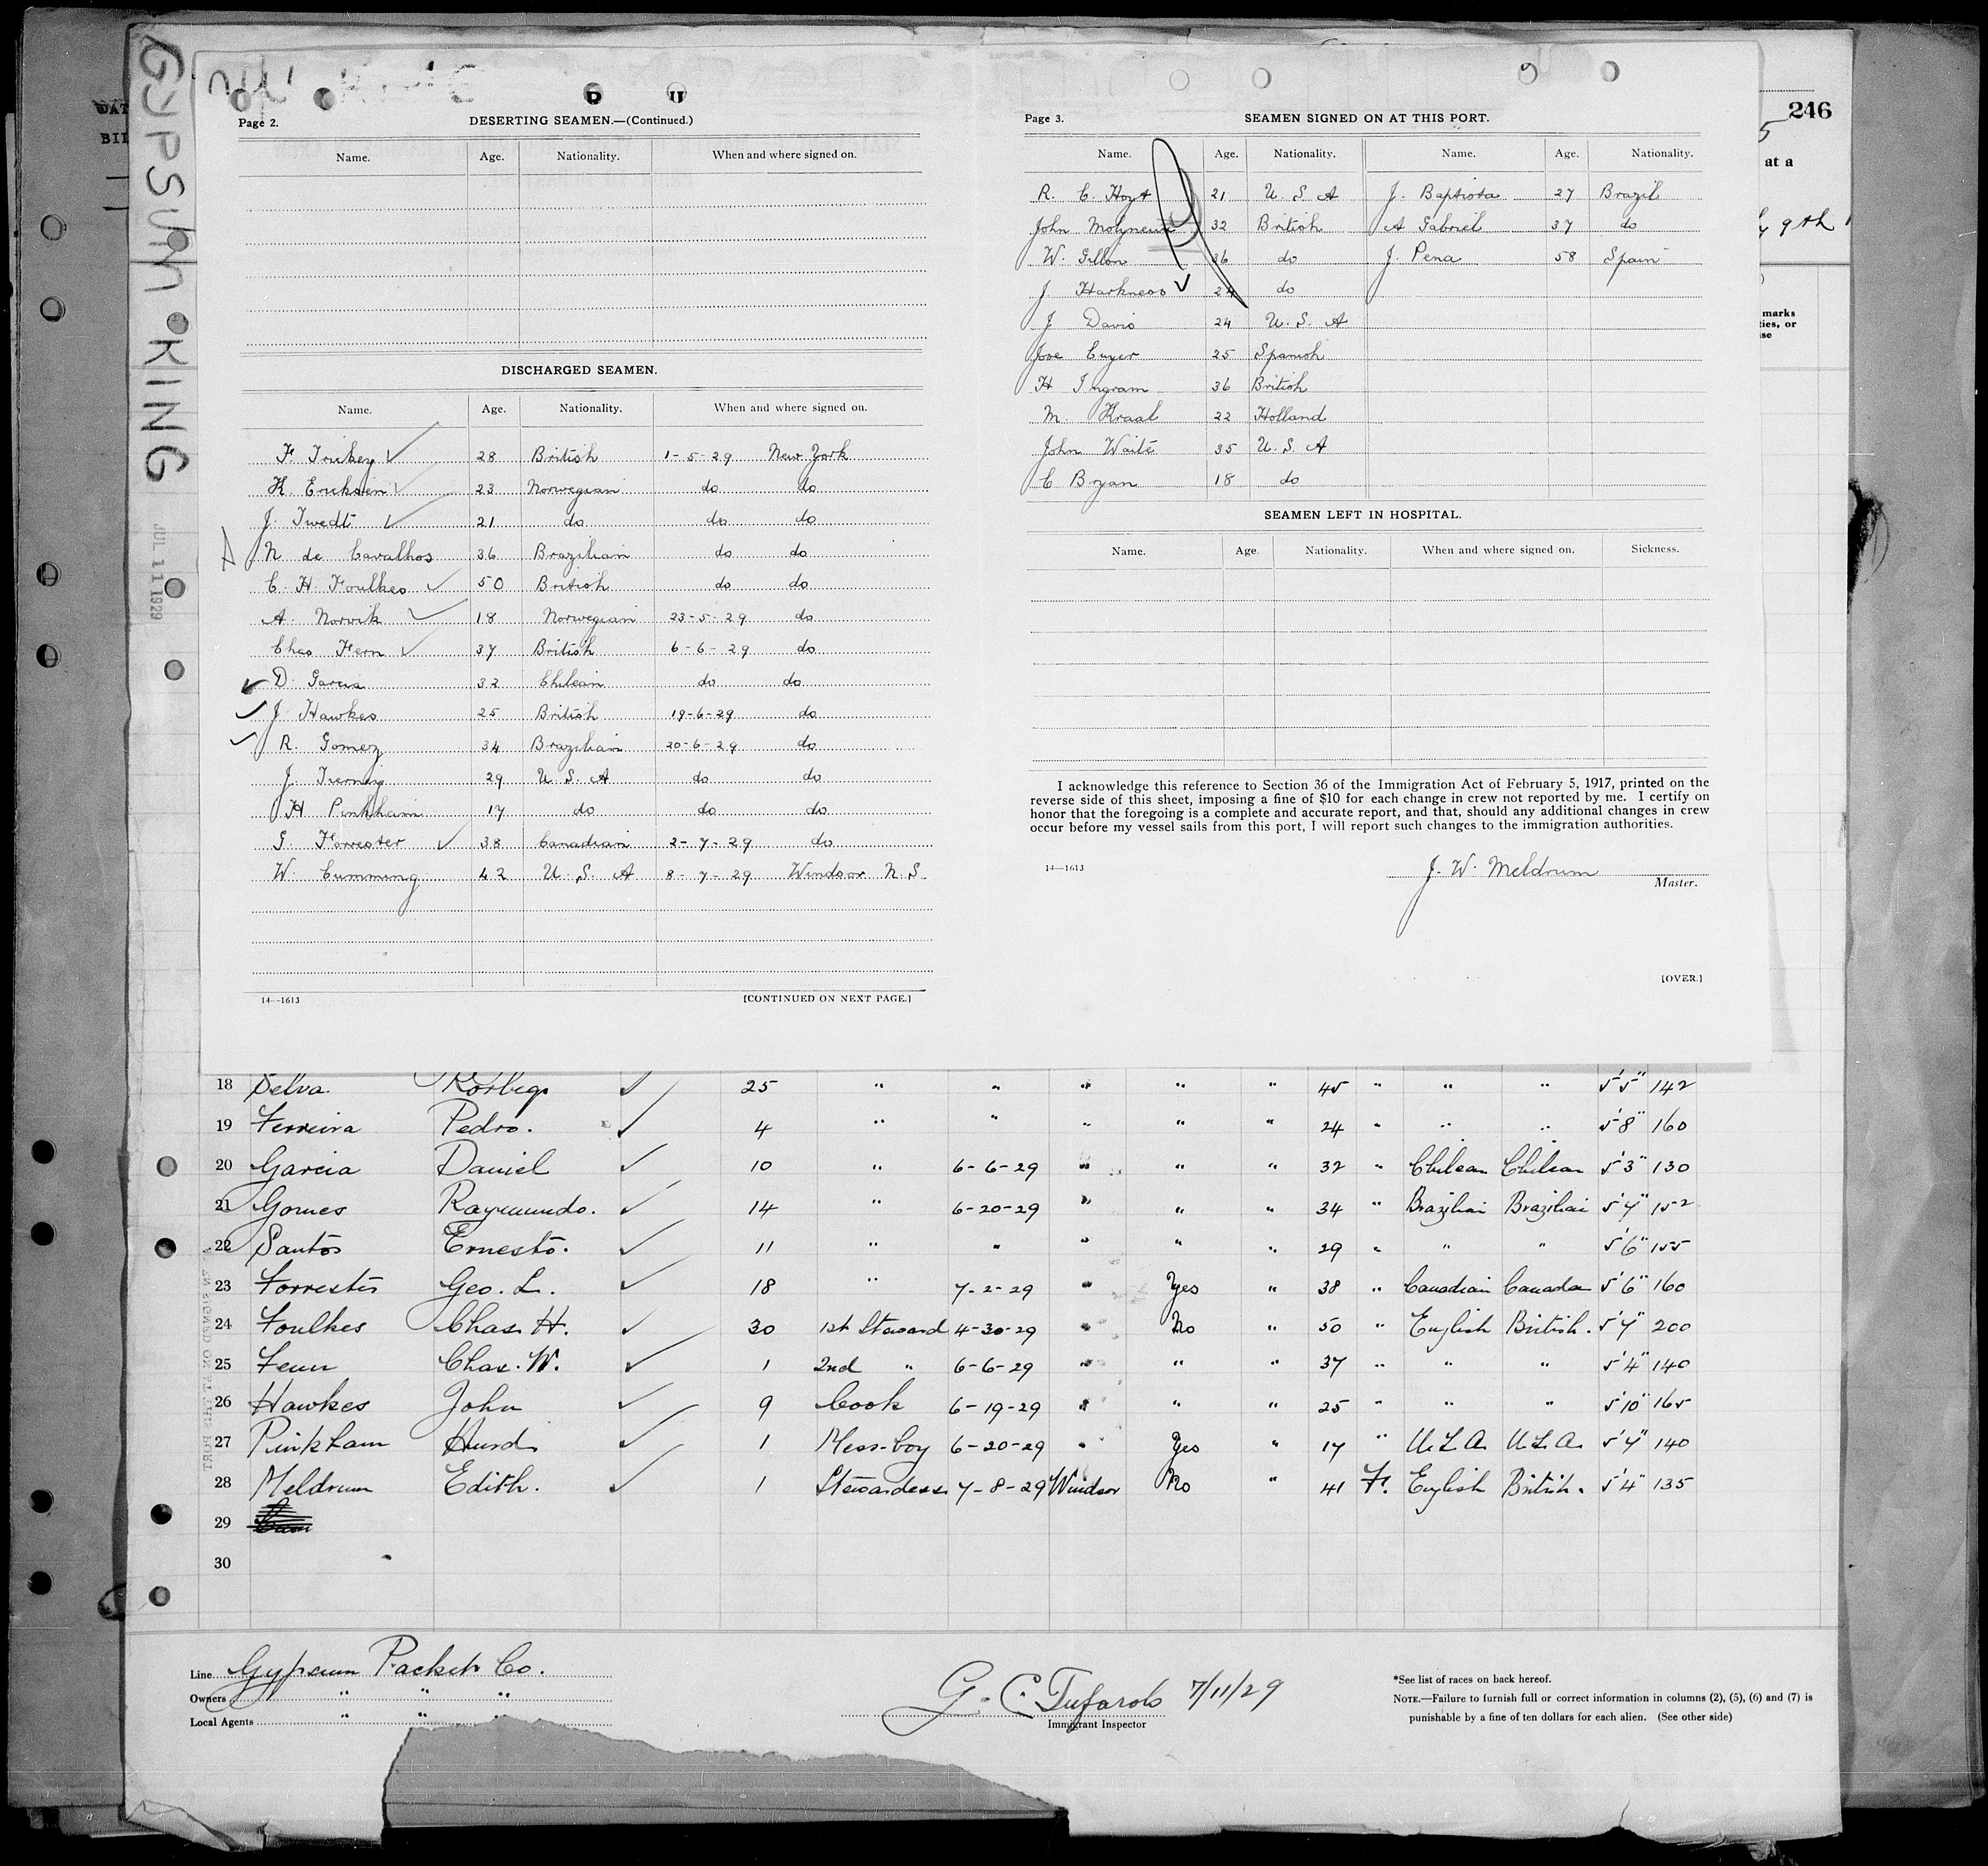 GYPSUM KING
JUL 11 1929
246
at a
9th
marks
ties, or
se
Page 2.
DESERTING SEAMEN.—(Continued.)
Name. Age. Nationality. When and where signed on.
DISCHARGED SEAMEN.
Name. Age. Nationality. When and where signed on.
F Trickey 28 British 1-5-29 New York
K. Ericksen 23 Norwegian do do
J. Twedt 21 do do do
N de Cavalhos 36 Brazilian do do
C. H. Foulkes 50 British do do
A. Norvik 18 Norwegian 23-5-29 do
Chas Fern 37 British 6-6-29 do
D. Garcia 32 Chilean do do
J. Hawkes 25 British 19-6-29 do
R. Gomez 34 Brazilian 20-6-29 do
J. Tierney 29 U. S. A do do
H Pinkham 17 do do do
G. Forrester 38 Canadian 2-7-29 do
W. Cumming 42 U. S. A 8-7-29 Windsor N.S.
14—1613 [CONTINUED ON NEXT PAGE.]
Page 3.
SEAMEN SIGNED ON AT THIS PORT.
Name. Age. Nationality. Name. Age. Nationality.
R. C. Hoyt 21 U. S A J. Baptista 27 Brazil
John Molyneux 32 British A Gabriel 37 do
W. Gillon 36 do J. Pena 58 Spain
J Harkness 24 do
J Davis 24 U. S. A
Jose Cuyer 25 Spanish
H Ingram 36 British
M. Kraal 22 Holland
John Waite 35 U. S. A
C Bryan 18 do
SEAMEN LEFT IN HOSPITAL.
Name. Age. Nationality. When and where signed on. Sickness.
I acknowledge this reference to Section 36 of the Immigration Act of February 5, 1917, printed on the
reverse side of this sheet, imposing a fine of $10 for each change in crew not reported by me. I certify on
honor that the foregoing is a complete and accurate report, and that, should any additional changes in crew
occur before my vessel sails from this port, I will report such changes to the immigration authorities.
14—1613 J. W. Meldrum
Master.
[OVER.]
18 Selva 25 " " " " " 45 " " " 5'5" 142
19 Ferreira Pedro. 4 " " " " " 24 " " " 5'8" 160
20 Garcia Daniel 10 " 6-6-29 " " " 32 " Chilean Chilean 5'3" 130
21 Gomes Raymundo. 14 " 6-20-29 " " " 34 " Brazilian Brazilian 5'7" 152
22 Santos Ernesto. 11 " " " " " 29 " " " 5'6" 155
23 Forrester Geo. L. 18 " 7-2-29 " Yes " 38 " Canadian Canada 5'6" 160
24 Foulkes Chas. H. 30 1st Steward 4-30-29 " No " 50 " English British. 5'7" 200
25 Fenn Chas. W. 1 2nd " 6-6-29 " " " 37 " " " 5'4" 140
26 Hawkes John 9 Cook 6-19-29 " " " 25 " " " 5'10" 165
27 Pinkham Hurd 1 Mess-boy 6-20-29 " Yes " 17 " U.S.A. U.S.A. 5'7" 140
28 Meldrum Edith. 1 Stewardess 7-8-29 Windsor No " 41 F. English British. 5'4" 135
29
30
Line Gypsum Packet Co.
Owners " " "
Local Agents " " "
G. C. Tufarolo 7/11/29
Immigrant Inspector
*See list of races on back hereof.
NOTE.—Failure to furnish full or correct information in columns (2), (5), (6) and (7) is
punishable by a fine of ten dollars for each alien. (See other side)